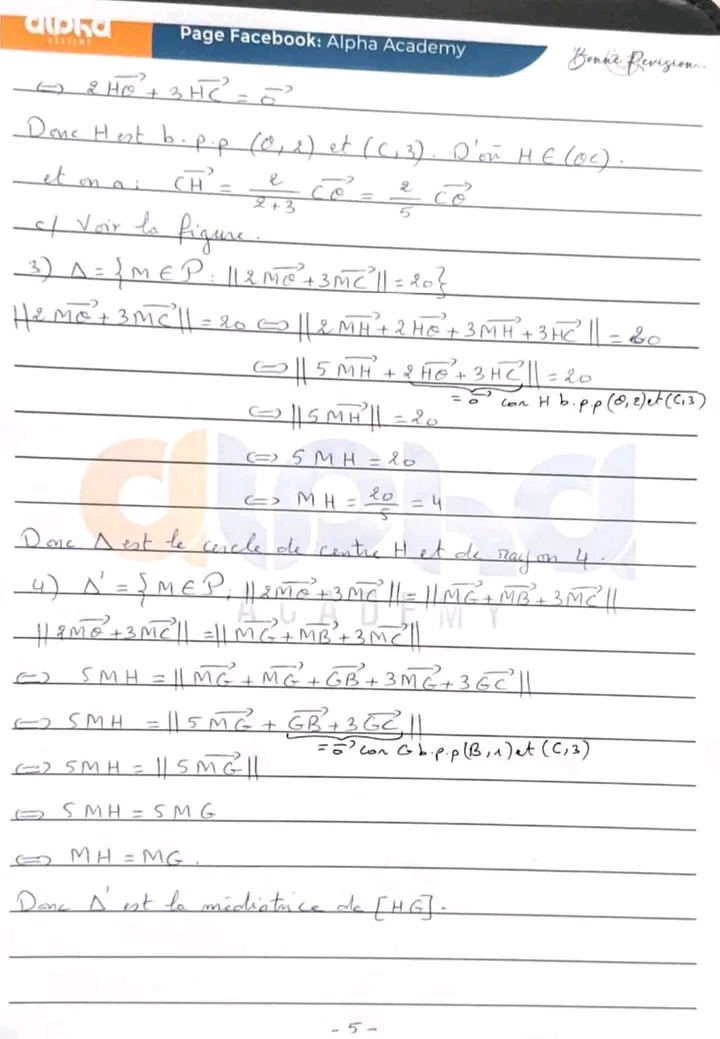 alpha
ACADEMY
Page Facebook: Alpha Academy
Bonne Revision...
⇔ 2HO⃗ + 3HC⃗ = 0⃗
Donc H est b.p.p (O,2) et (C,3). D'où H ∈ (OC).
et on a : CH⃗ = 2/(2+3) CO⃗ = 2/5 CO⃗
c/ Voir la figure.
3) Δ = {M ∈ P : ||2MO⃗ + 3MC⃗|| = 20}
||2MO⃗ + 3MC⃗|| = 20 ⇔ ||2MH⃗ + 2HO⃗ + 3MH⃗ + 3HC⃗|| = 20
⇔ ||5MH⃗ + 2HO⃗ + 3HC⃗|| = 20
= 0⃗ car H b.p.p (O,2) et (C,3)
⇔ ||5MH⃗|| = 20
⇔ 5MH = 20
⇔ MH = 20/5 = 4
Donc Δ est le cercle de centre H et de rayon 4.
4) Δ' = {M ∈ P ; ||2MO⃗ + 3MC⃗|| = ||MG⃗ + MB⃗ + 3MC⃗||
ACADEMY
||2MO⃗ + 3MC⃗|| = ||MG⃗ + MB⃗ + 3MC⃗||
⇔ 5MH = ||MG⃗ + MG⃗ + GB⃗ + 3MG⃗ + 3GC⃗||
⇔ 5MH = ||5MG⃗ + GB⃗ + 3GC⃗||
= 0⃗ car G b.p.p (B,1) et (C,3)
⇔ 5MH = ||5MG⃗||
⇔ 5MH = 5MG
⇔ MH = MG.
Donc Δ' est la médiatrice de [HG].
- 5 -